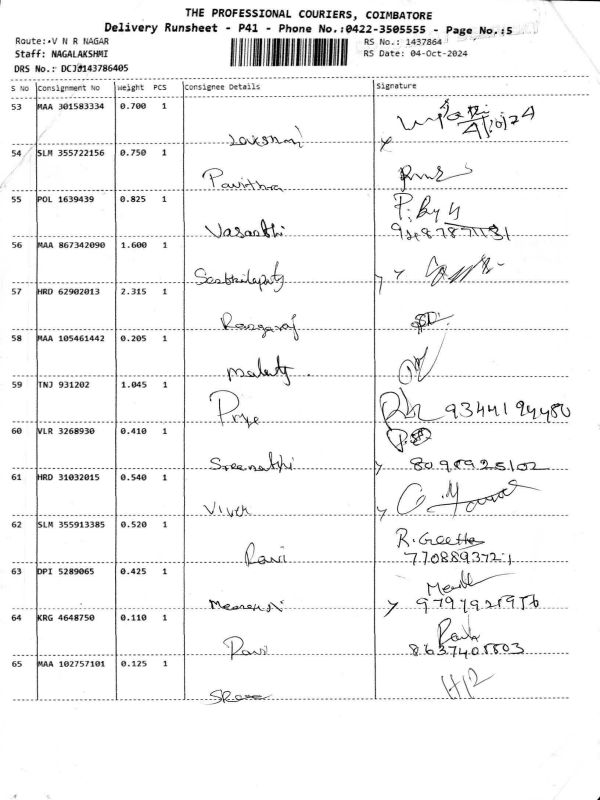 THE PROFESSIONAL COURIERS, COIMBATORE
Delivery Runsheet - P41 - Phone No.:0422-3505555 - Page No.:5
Route: V N R NAGAR
RS No.: 1437864
Staff: NAGALAKSHMI
RS Date: 04-Oct-2024
DRS No.: DCJJ143786405
S No Consignment No Weight PCS Consignee Details Signature
53 MAA 301583334 0.700 1
4/10/24
Lakshmi
54 SLM 355722156 0.750 1
Pavithra
55 POL 1639439 0.825 1
Vasanthi
56 MAA 867342090 1.600 1
57 HRD 62902013 2.315 1
Rangaraj
58 MAA 105461442 0.205 1
Malathy
59 TNJ 931202 1.045 1
Priya 9344194480
60 VLR 3268930 0.410 1
Sreenathi
61 HRD 31032015 0.540 1
Vivek
62 SLM 355913385 0.520 1
R. Geetha
Ravi 7708893721
63 DPI 5289065 0.425 1
64 KRG 4648750 0.110 1
Ravi
65 MAA 102757101 0.125 1